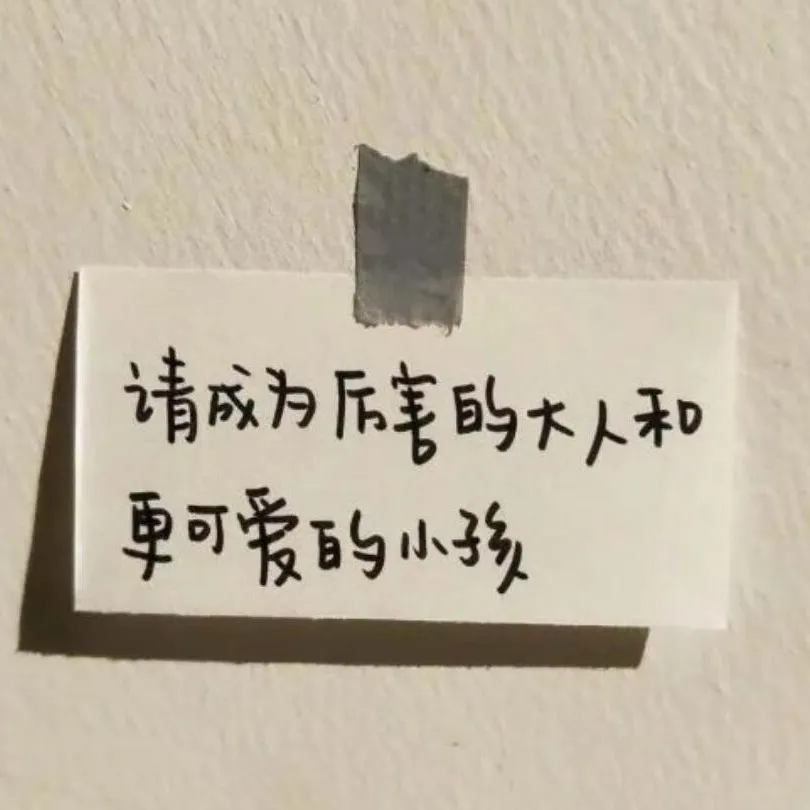 请成为厉害的大人和
更可爱的小孩